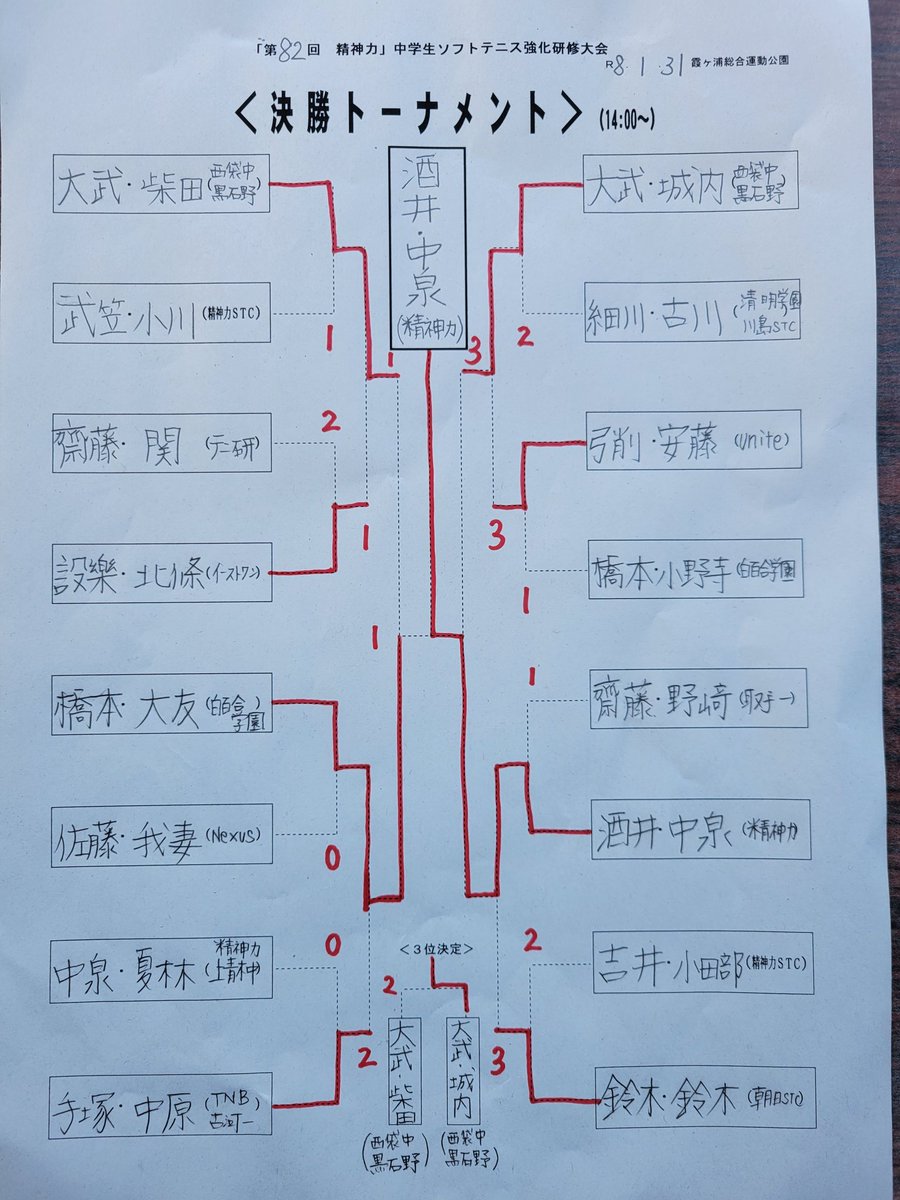 「第82回 精神力」中学生ソフトテニス強化研修大会
R8.1.31 霞ヶ浦総合運動公園
＜決勝トーナメント＞(14:00〜)
酒井・中泉
(精神力)
大武・柴田(西袋中
黒石野)
武笠・小川(精神力STC)
1
1
2
齋藤・関(テニ研)
設樂・北條(イーストワン)
1
1
橋本・大友(白百合
学園)
佐藤・我妻(Nexus)
0
0
中泉・夏林(精神力
上青神)
手塚・中原(TNB
古河一)
2
大武・城内(西袋中
黒石野)
細川・古川(清明学園
川島STC)
2
3
弓削・安藤(Unite)
3
橋本・小野寺(白百合学園)
1
1
齋藤・野﨑(取手一)
酒井・中泉(精神力)
吉井・小田部(精神力STC)
2
鈴木・鈴木(朝日STC)
3
＜3位決定＞
2
大武・柴田
(西袋中
黒石野)
大武・城内
(西袋中
黒石野)